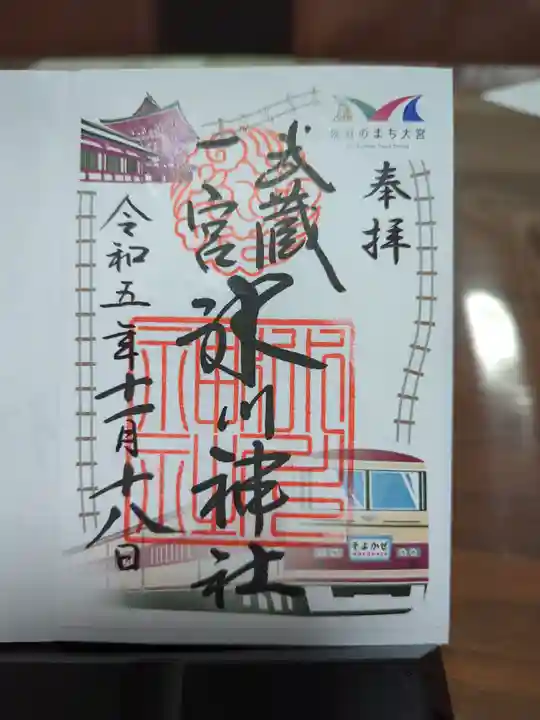 奉拝
武蔵
一宮
氷川神社
令和五年十一月十八日
のまち大宮
そよかぜ